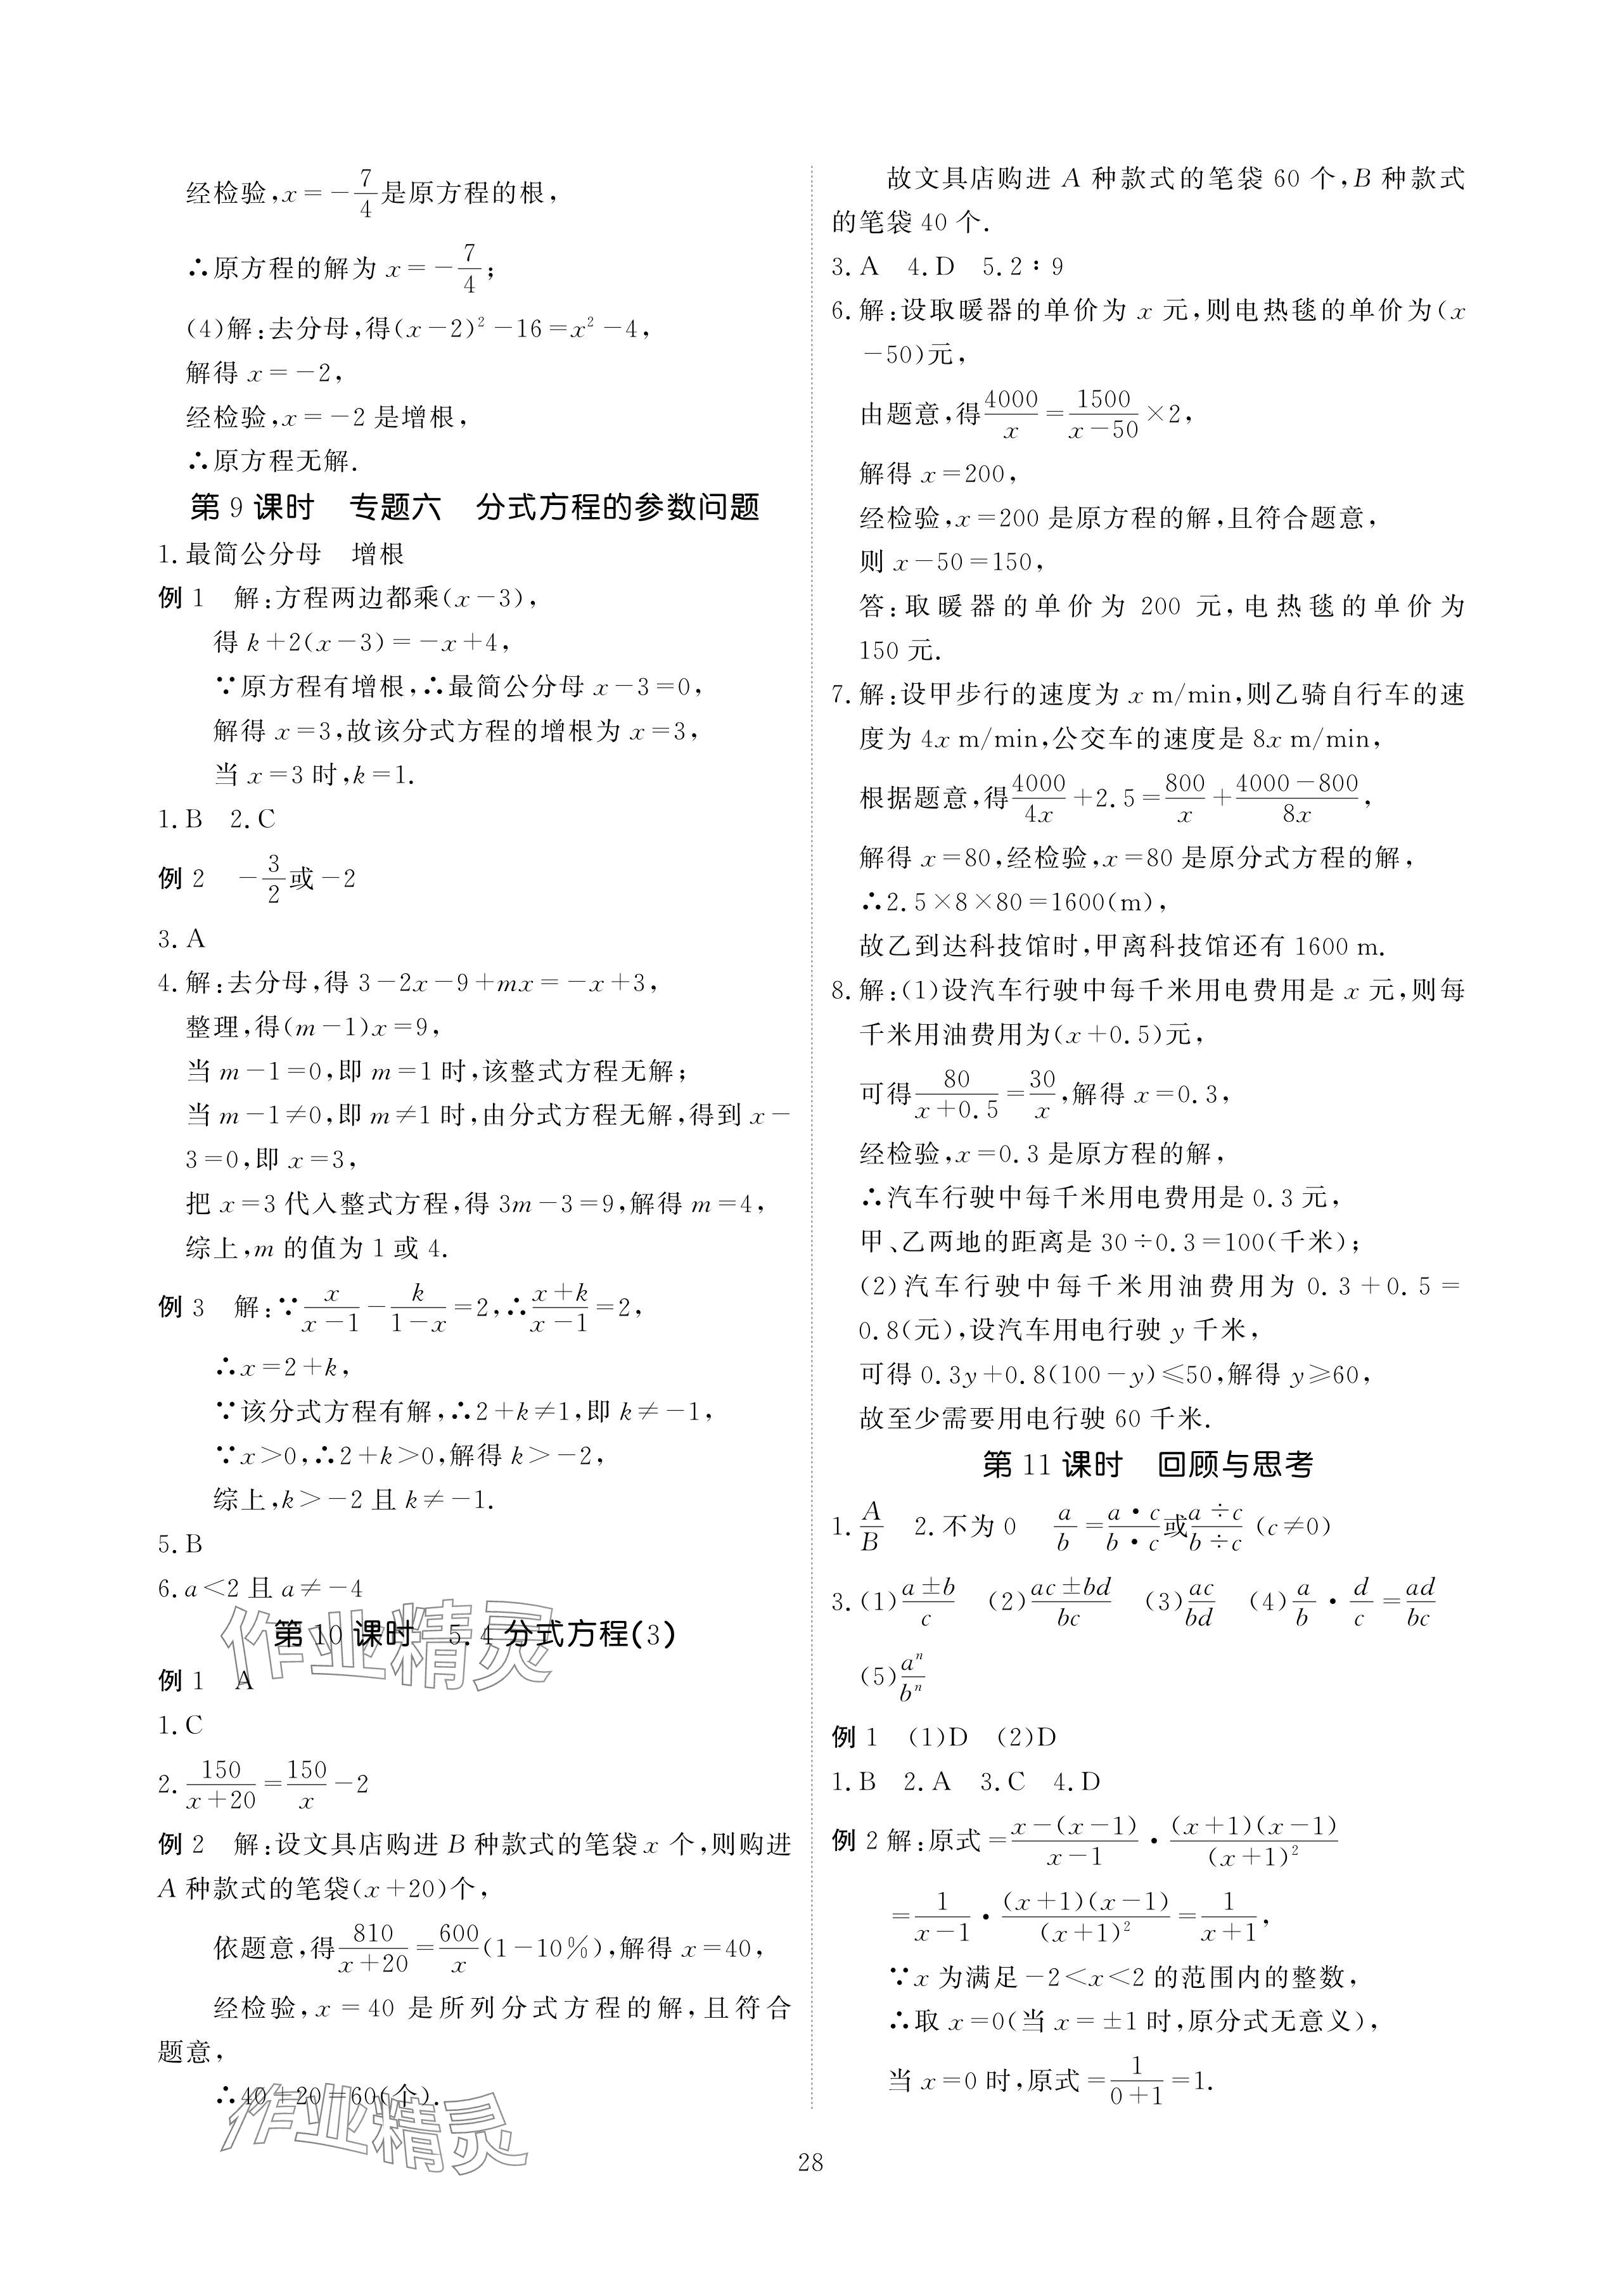 经检验,x=-7/4是原方程的根,
∴原方程的解为 x=-7/4;
(4)解:去分母,得(x-2)²-16=x²-4,
解得 x=-2,
经检验,x=-2 是增根,
∴原方程无解.
第 9 课时　专题六　分式方程的参数问题
1.最简公分母　增根
例 1　解:方程两边都乘(x-3),
得 k+2(x-3)=-x+4,
∵原方程有增根,∴最简公分母 x-3=0,
解得 x=3,故该分式方程的增根为 x=3,
当 x=3 时,k=1.
1.B　2.C
例 2　-3/2或-2
3.A
4.解:去分母,得 3-2x-9+mx=-x+3,
整理,得(m-1)x=9,
当 m-1=0,即 m=1 时,该整式方程无解;
当 m-1≠0,即 m≠1 时,由分式方程无解,得到 x-
3=0,即 x=3,
把 x=3 代入整式方程,得 3m-3=9,解得 m=4,
综上,m 的值为 1 或 4.
例 3　解:∵x/(x-1)-k/(1-x)=2,∴(x+k)/(x-1)=2,
∴x=2+k,
∵该分式方程有解,∴2+k≠1,即 k≠-1,
∵x>0,∴2+k>0,解得 k>-2,
综上,k>-2 且 k≠-1.
5.B
6.a<2 且 a≠-4
第 10 课时　5.4 分式方程(3)
例 1　A
1.C
2.150/(x+20)=150/x-2
例 2　解:设文具店购进 B 种款式的笔袋 x 个,则购进
A 种款式的笔袋(x+20)个,
依题意,得810/(x+20)=600/x(1-10%),解得 x=40,
经检验,x=40 是所列分式方程的解,且符合
题意,
∴40+20=60(个).
故文具店购进 A 种款式的笔袋 60 个,B 种款式
的笔袋 40 个.
3.A　4.D　5.2∶9
6.解:设取暖器的单价为 x 元,则电热毯的单价为(x
-50)元,
由题意,得4000/x=1500/(x-50)×2,
解得 x=200,
经检验,x=200 是原方程的解,且符合题意,
则 x-50=150,
答:取暖器的单价为 200 元,电热毯的单价为
150 元.
7.解:设甲步行的速度为 x m/min,则乙骑自行车的速
度为 4x m/min,公交车的速度是 8x m/min,
根据题意,得4000/4x+2.5=800/x+(4000-800)/8x,
解得 x=80,经检验,x=80 是原分式方程的解,
∴2.5×8×80=1600(m),
故乙到达科技馆时,甲离科技馆还有 1600 m.
8.解:(1)设汽车行驶中每千米用电费用是 x 元,则每
千米用油费用为(x+0.5)元,
可得80/(x+0.5)=30/x,解得 x=0.3,
经检验,x=0.3 是原方程的解,
∴汽车行驶中每千米用电费用是 0.3 元,
甲、乙两地的距离是 30÷0.3=100(千米);
(2)汽车行驶中每千米用油费用为 0.3+0.5=
0.8(元),设汽车用电行驶 y 千米,
可得 0.3y+0.8(100-y)≤50,解得 y≥60,
故至少需要用电行驶 60 千米.
第 11 课时　回顾与思考
1.A/B　2.不为 0　a/b=(a·c)/(b·c)或(a÷c)/(b÷c)(c≠0)
3.(1)(a±b)/c　(2)(ac±bd)/bc　(3)ac/bd　(4)a/b·d/c=ad/bc
(5)aⁿ/bⁿ
例 1　(1)D　(2)D
1.B　2.A　3.C　4.D
例 2 解:原式=(x-(x-1))/(x-1)·((x+1)(x-1))/(x+1)²
=1/(x-1)·((x+1)(x-1))/(x+1)²=1/(x+1),
∵x 为满足-2<x<2 的范围内的整数,
∴取 x=0(当 x=±1 时,原分式无意义),
当 x=0 时,原式=1/(0+1)=1.
28
作业精灵
作业精灵